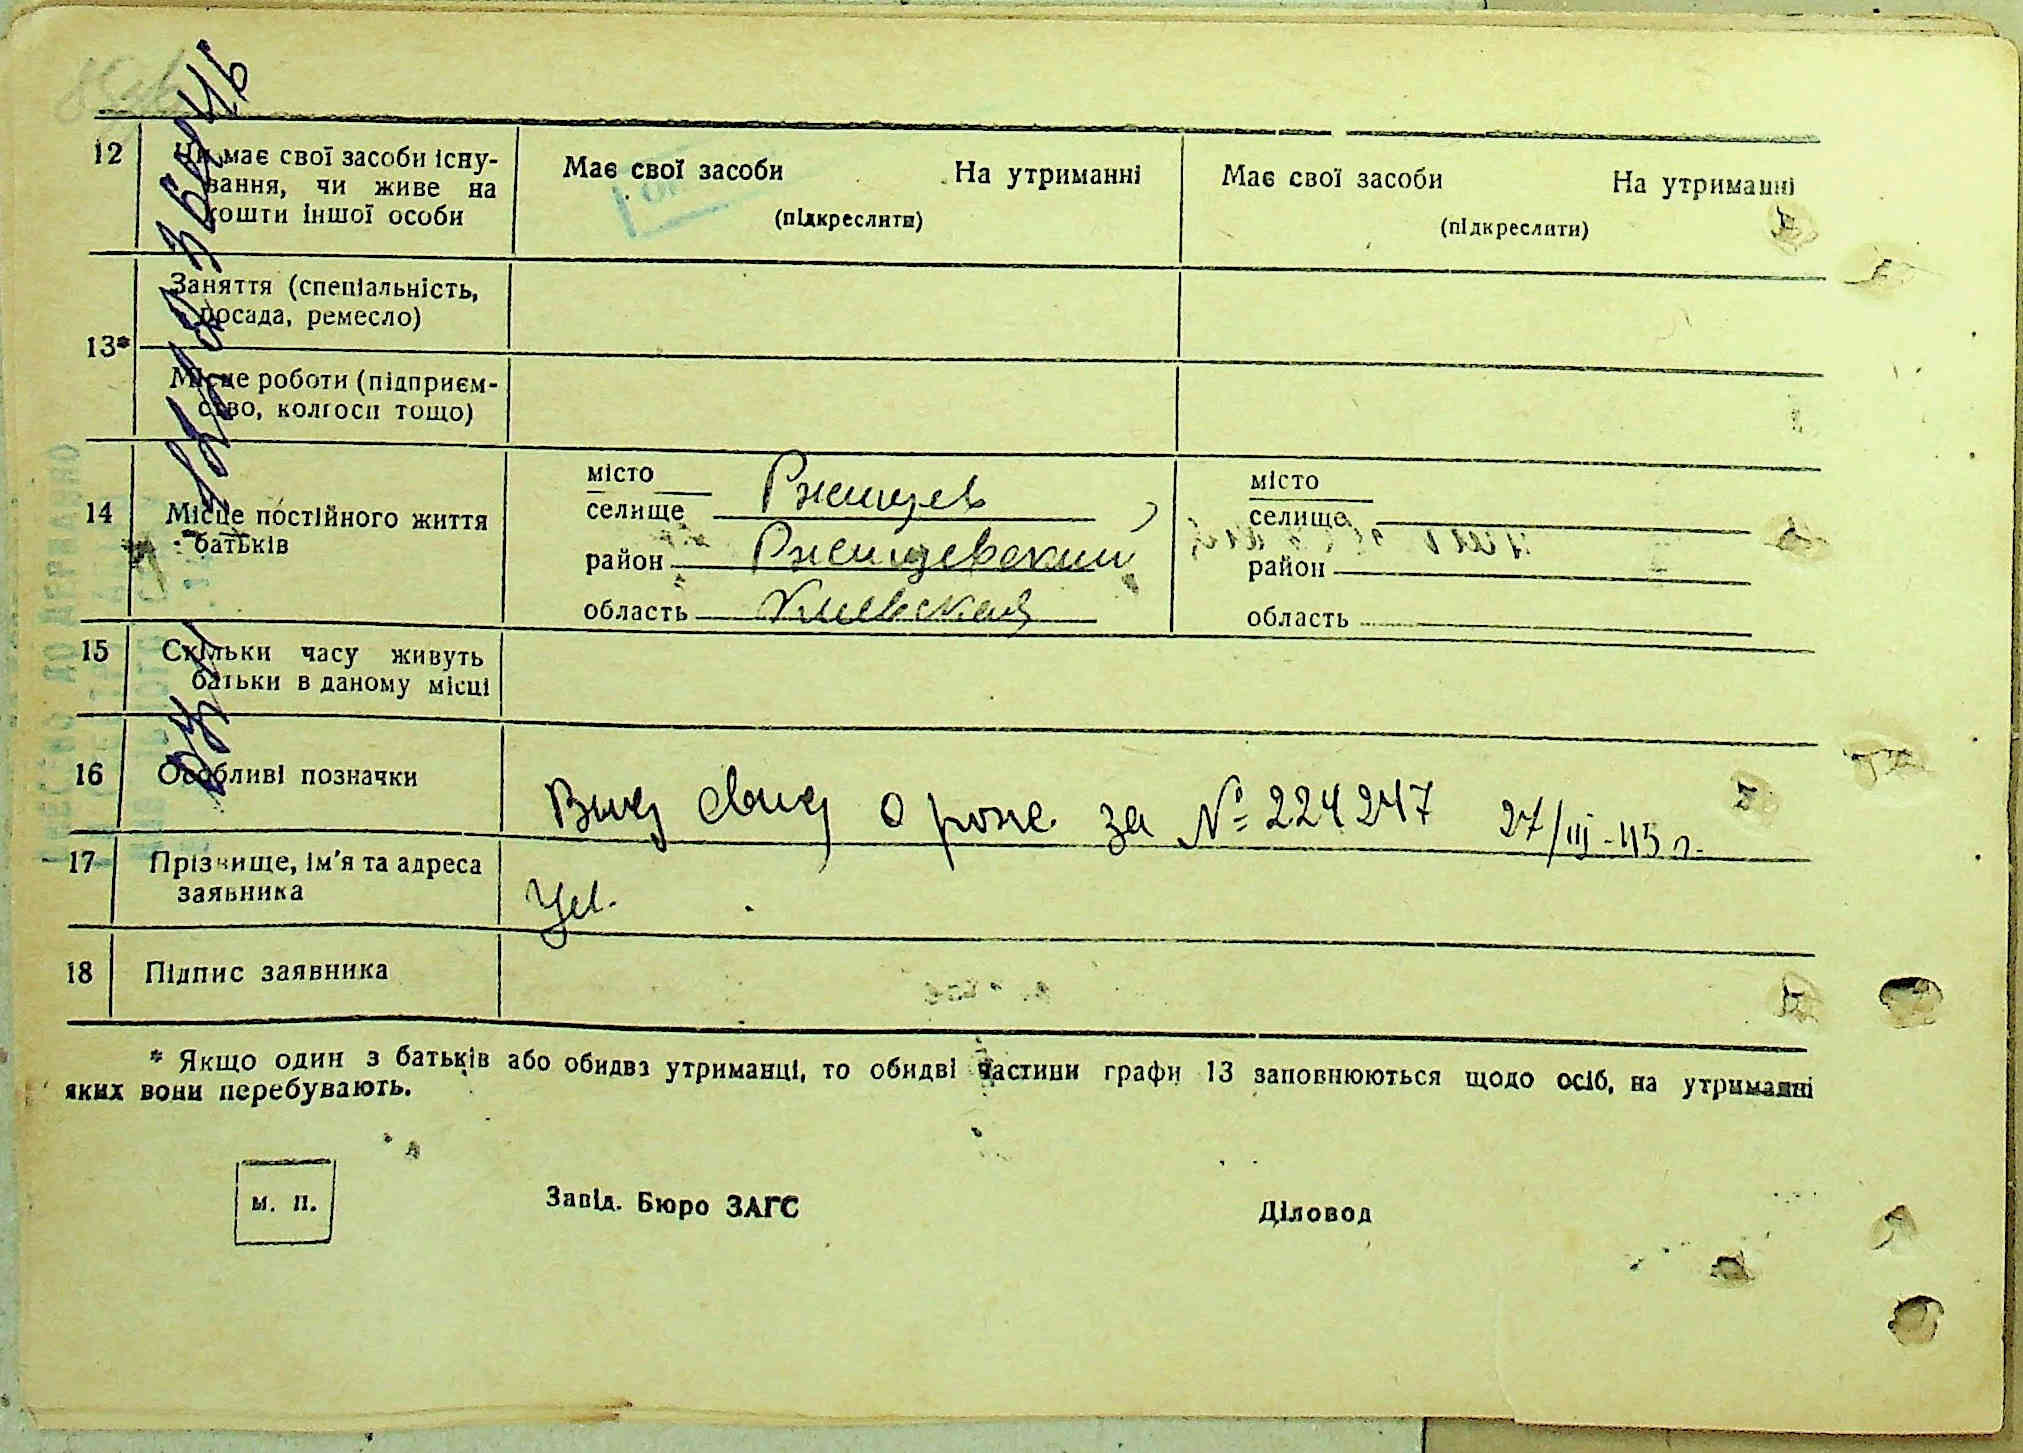 12
Чи має свої засоби існу-
вання, чи живе на
кошти іншої особи
Має свої засоби На утриманні
(підкреслити)
Має свої засоби На утриманні
(підкреслити)
13*
Заняття (спеціальність,
посада, ремесло)
Місце роботи (підприєм-
ство, колгосп тощо)
14
Місце постійного життя
батьків
місто
селище Ржищев
район Ржищевский
область Киевская
місто
селище
район
область
15
Скільки часу живуть
батьки в даному місці
16
Особливі позначки
Выд свид о рожд за № 224247 27/III-45 г.
17
Прізвище, ім'я та адреса
заявника
18
Підпис заявника
* Якщо один з батьків або обидва утриманці, то обидві частини графи 13 заповнюються щодо осіб, на утриманні
яких вони перебувають.
м. п.
Завід. Бюро ЗАГС
Діловод